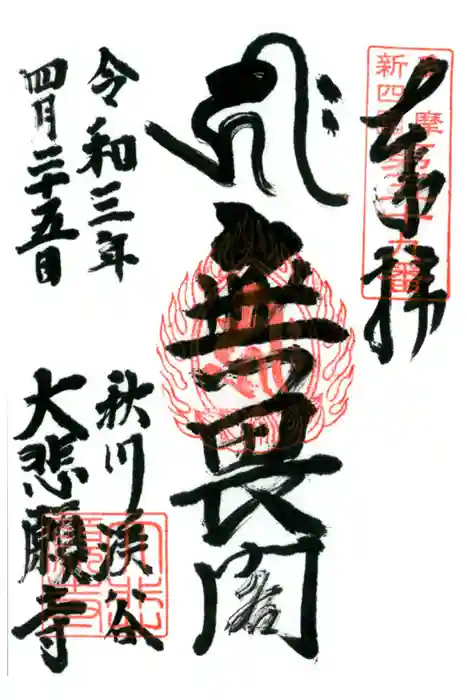 奉拝
多摩
新四国
十九番
無畏閣
令和三年
四月二十五日
秋川渓谷
大悲願寺